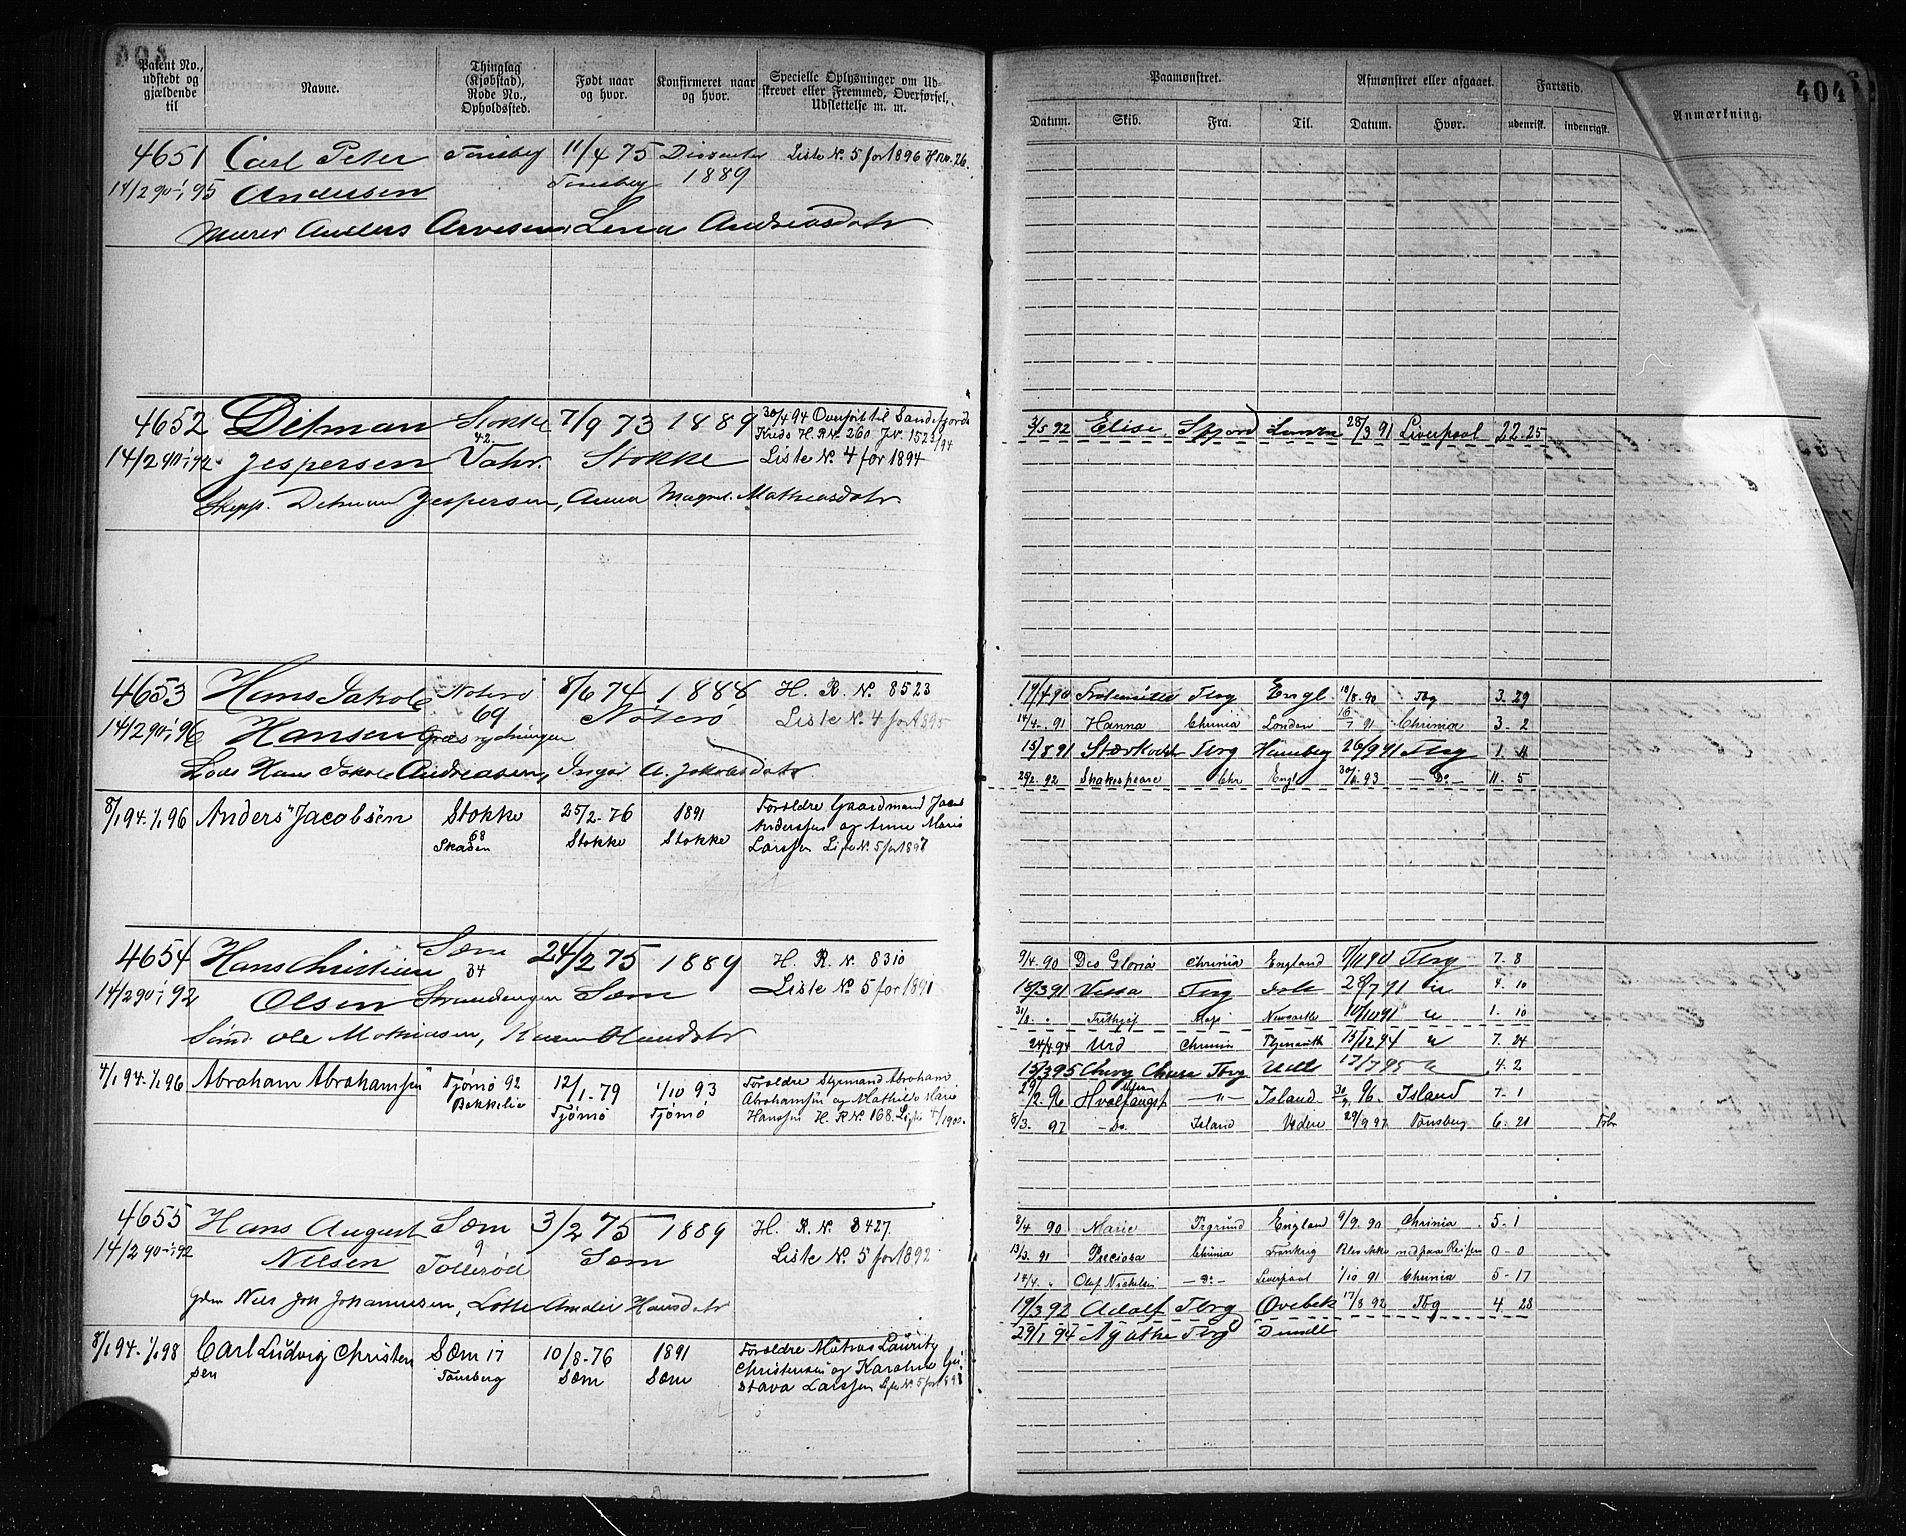 404
Patent No., udstedt og gjældende til | Navne. | Thinglag (Kjøbstad), Rode No., Opholdssted. | Født naar og hvor. | Konfirmeret naar og hvor. | Specielle Oplysninger om Udskrevet eller Fremmed, Overførsel, Udslettelse m. m.
Paamønstret. | Afmønstret eller afgaaet. | Fartstid. | Anmærkning.
Datum. | Skib. | Fra. | Til. | Datum. | Hvor. | udenrigsk. | indenrigsk.
4651 Carl Peter Tønsberg 11/4 75 Dissenter Liste No. 5 for 1896 H No. 26
14/2 90 - 1/1 95 Andersen Tønsberg 1889
Murer Anders Arvesen, Lena Andreasdatr
4652 Ditman Stokke 7/9 73 1889 30/4 94 Overført til Sandefjords
42 Kreds H. R. No. 260 Jr. 152 2/94
14/2 90 - 1/1 92 Jespersen Stokke Liste No. 4 for 1894
Skipp. Detman Jespersen, Anna Magret. Mathiasdatr
3/5 92 Elise Lenden 28/3 91 Liverpool 22. 25
4653 Hans Jakob Nøterø 8/6 74 1888 H. R. No. 8523
69 Nøterø Liste No. 4 for 1895
14/2 90 - 1/1 96 Hansen
Lods Hans Jakob Andreasen, Inger A. Jakobsdatr
19/4 90 Tbrg Engl 18/8 90 Tbg 3. 29
14/4 - 91 Hanna Chrinia London 16/7 91 Chrinia 3 - 2
15/8 91 Tbrg Hamburg 26/9 91 Tbrg 1. 11
29/2. 92 Shakespeare Chr Engl 30/11. 93 - Do - 11. 5
8/1 94 - 1/1 96 Anders Jacobsen Stokke 25/2 - 76 1891 Foreldre Gaardmand Jacob
68 Anderssen og Anne Marie
Skaden Stokke Stokke Larssen Liste No. 5 for 1897
4654 Hans Christian Sæm 24/2 75 1889 H. R. No. 8310
34
14/2 90 - 1/1 92 Olsen Strandengen Sæm Liste No. 5 for 1891
Sømd. Ole Mathiesen, Karen Olausdatr
9/4. 90 Des Gloria Chrinia England 7/11 90 Tbrg 7. 8
18/3 91 Tbrg 28/7 91 4. 10
31/8 Frithjof Newcastle 10/11 91 1. 10
24/4 94 Urd Chrinia 15/12 94 7. 24
15/3 95 Tbrg 17/7 95 4. 2
29/2. 96 Hvalfangst - " - Island 30/9 96. Island 7. 1
8/3. 97 - Do. Island 29/9 97 Tønsberg 6. 21
4/1 94 - 1/1 96 Abraham Abrahamsen Tjømø 92 12/1. 79 1/10 93 Foreldre Styrmand Abraham
Bekkelie Abrahamsen og Mathilde Marie
Tjømø Tjømø Hanssen H. R No. 168. Liste 4/1900.
4655 Hans August Sæm 3/2 75 1889 H. R. No. 8427.
9
14/2 90 - 1/1 92 Nilsen Tollerød Sæm Liste No. 5 for 1892
Gdm Nils Joh Johannesen, Lotte Amalie Hansdatr
8/4 90 Marie England 9/9. 90 Chrinia 5. 1
13/3. 91 Preciosa Chrinia Frankrig Blev ikke med paa Reisen 0 - 0
14/4. " Olaf Nickelsen - Do - Liverpool 1/10 91 Chrinia 5 - 17
19/3 92 Adolf Tbrg 17/8 92 Tbg 4. 28
29/1 94 Agathe Tbrg
8/1 94 - 1/1 98 Carl Ludvig Christensen Sæm 17 10/8 - 76 1891 Foreldre Matros Lauritz
Tønsberg Sæm Sæm Christensen og Karoline Gustava Larssen Liste No. 5 for 1898